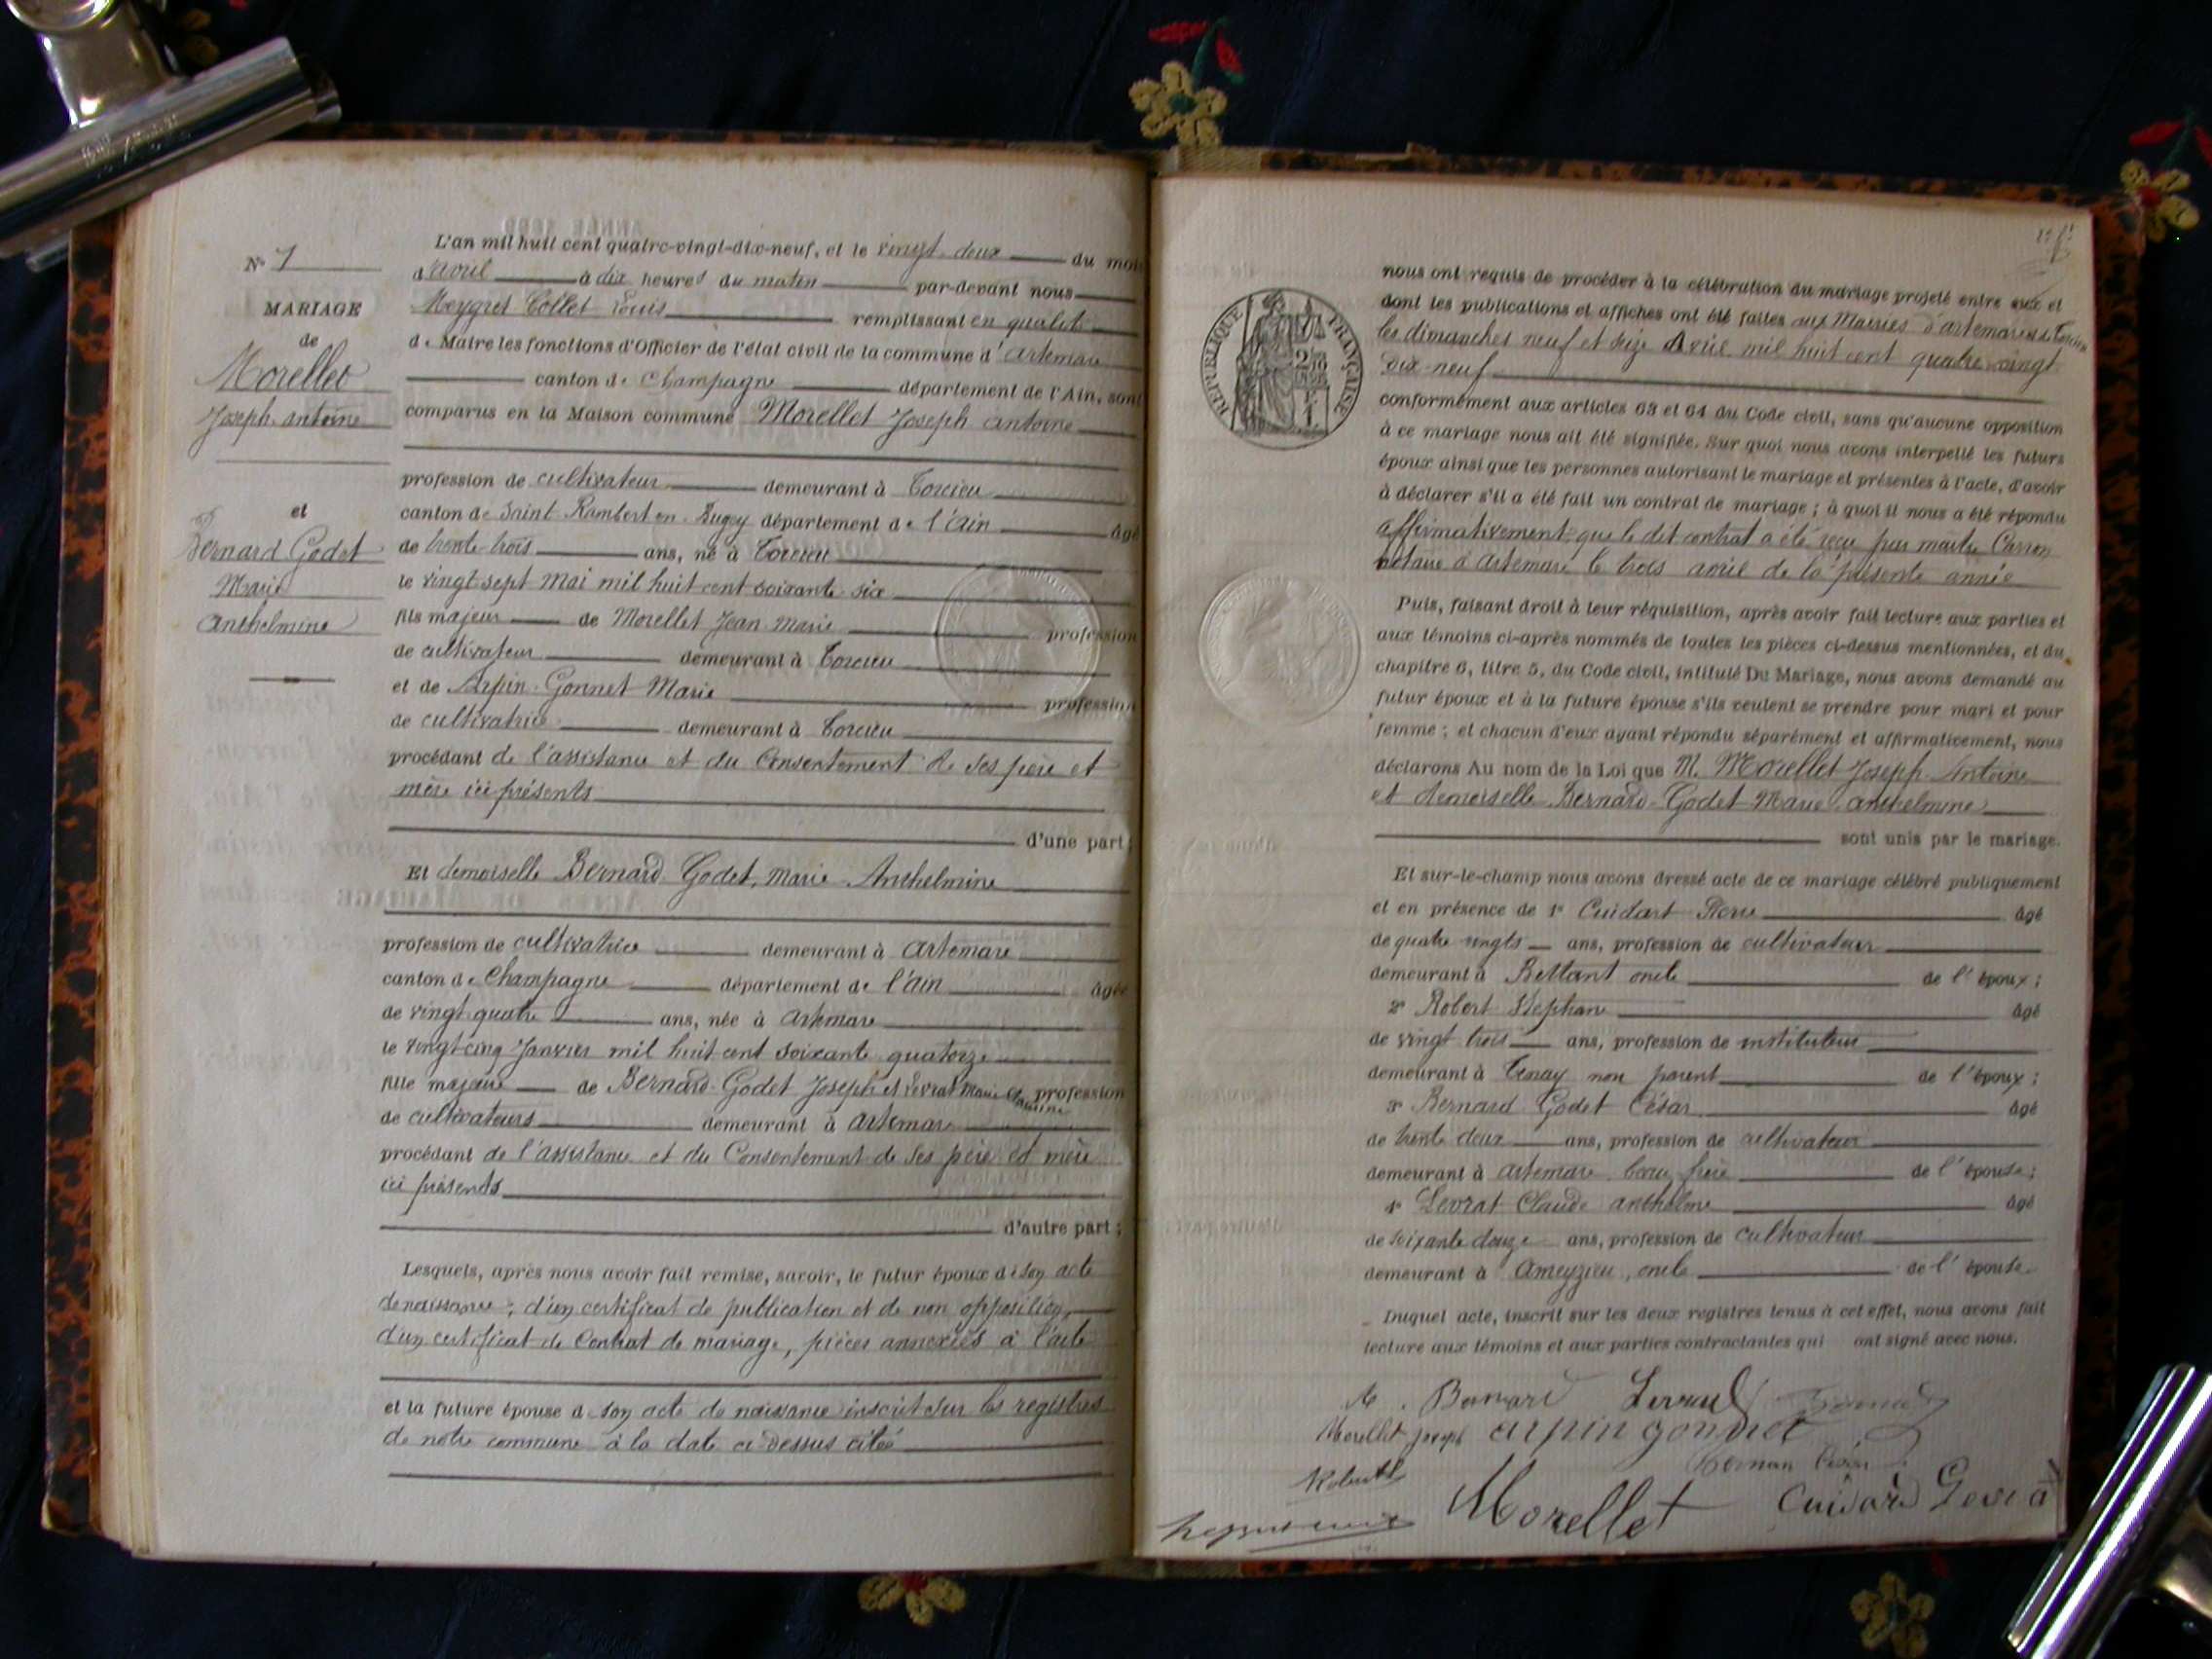 N° 1
MARIAGE
de
Morellet
Joseph antoine
et
Bernard Godet
Marie
Anthelmine
L'an mil huit cent quatre-vingt-dix-neuf, et le vingt deux du mois
d'avril à dix heures du matin par-devant nous
Meygret Collet Louis remplissant en qualité
de Maire les fonctions d'Officier de l'état civil de la commune d'artemare
canton de Champagne département de l'Ain, sont
comparus en la Maison commune Morellet Joseph antoine
profession de cultivateur demeurant à Torcieu
canton de Saint Rambert en Bugey département de l'Ain âgé
de trente-trois ans, né à Torcieu
le vingt-sept Mai mil huit cent soixante six
fils majeur de Morellet Jean Marie profession
de cultivateur demeurant à Torcieu
et de Arpin-Gonnet Marie profession
de cultivatrice demeurant à Torcieu
procédant de l'assistance et du Consentement de ses père et
mère ici présents
d'une part ;
Et demoiselle Bernard Godet, Marie Anthelmine
profession de cultivatrice demeurant à artemare
canton de Champagne département de l'ain âgée
de vingt quatre ans, née à artemare
le vingt-cinq Janvier mil huit cent soixante quatorze
fille majeure de Bernard-Godet Joseph et Levrat Marie profession
de cultivateurs demeurant à artemare
procédant de l'assistance et du Consentement de ses père et mère
ici présents
d'autre part ;
Lesquels, après nous avoir fait remise, savoir, le futur époux de son acte
de naissance ; d'un certificat de publication et de non opposition,
d'un certificat de Contrat de mariage, pièces annexées à l'acte
et la future épouse d son acte de naissance inscrit sur les registres
de notre commune à la date ci dessus citée
RÉPUBLIQUE FRANÇAISE
nous ont requis de procéder à la célébration du mariage projeté entre eux et
dont les publications et affiches ont été faites aux Mairies d'artemare et de Torcieu
les dimanches neuf et seize Avril mil huit cent quatre vingt
dix-neuf
conformément aux articles 63 et 64 du Code civil, sans qu'aucune opposition
à ce mariage nous ait été signifiée. Sur quoi nous avons interpellé les futurs
époux ainsi que les personnes autorisant le mariage et présentes à l'acte, d'avoir
à déclarer s'il a été fait un contrat de mariage ; à quoi il nous a été répondu
affirmativement que le dit contrat a été reçu par maître Carron
notaire à Artemare le trois avril de la présente année
Puis, faisant droit à leur réquisition, après avoir fait lecture aux parties et
aux témoins ci-après nommés de toutes les pièces ci-dessus mentionnées, et du
chapitre 6, titre 5, du Code civil, intitulé Du Mariage, nous avons demandé au
futur époux et à la future épouse s'ils veulent se prendre pour mari et pour
femme ; et chacun d'eux ayant répondu séparément et affirmativement, nous
déclarons Au nom de la Loi que M. Morellet Joseph Antoine
et demoiselle Bernard-Godet Marie anthelmine
sont unis par le mariage.
Et sur-le-champ nous avons dressé acte de ce mariage célébré publiquement
et en présence de 1° Cuidart Pierre âgé
de quatre vingts ans, profession de cultivateur
demeurant à Bettant oncle de l'époux ;
2° Robert Stephane âgé
de vingt trois ans, profession de instituteur
demeurant à Tenay non parent de l'époux ;
3° Bernard Godet César âgé
de trente deux ans, profession de cultivateur
demeurant à artemare beau frère de l'épouse ;
4° Levrat Claude anthelme âgé
de soixante douze ans, profession de cultivateur
demeurant à Ameyzieu, oncle de l'épouse
Duquel acte, inscrit sur les deux registres tenus à cet effet, nous avons fait
lecture aux témoins et aux parties contractantes qui ont signé avec nous.
M. Bernard Levrat
Morellet joseph arpin gonnet
Robert
Morellet Cuidard